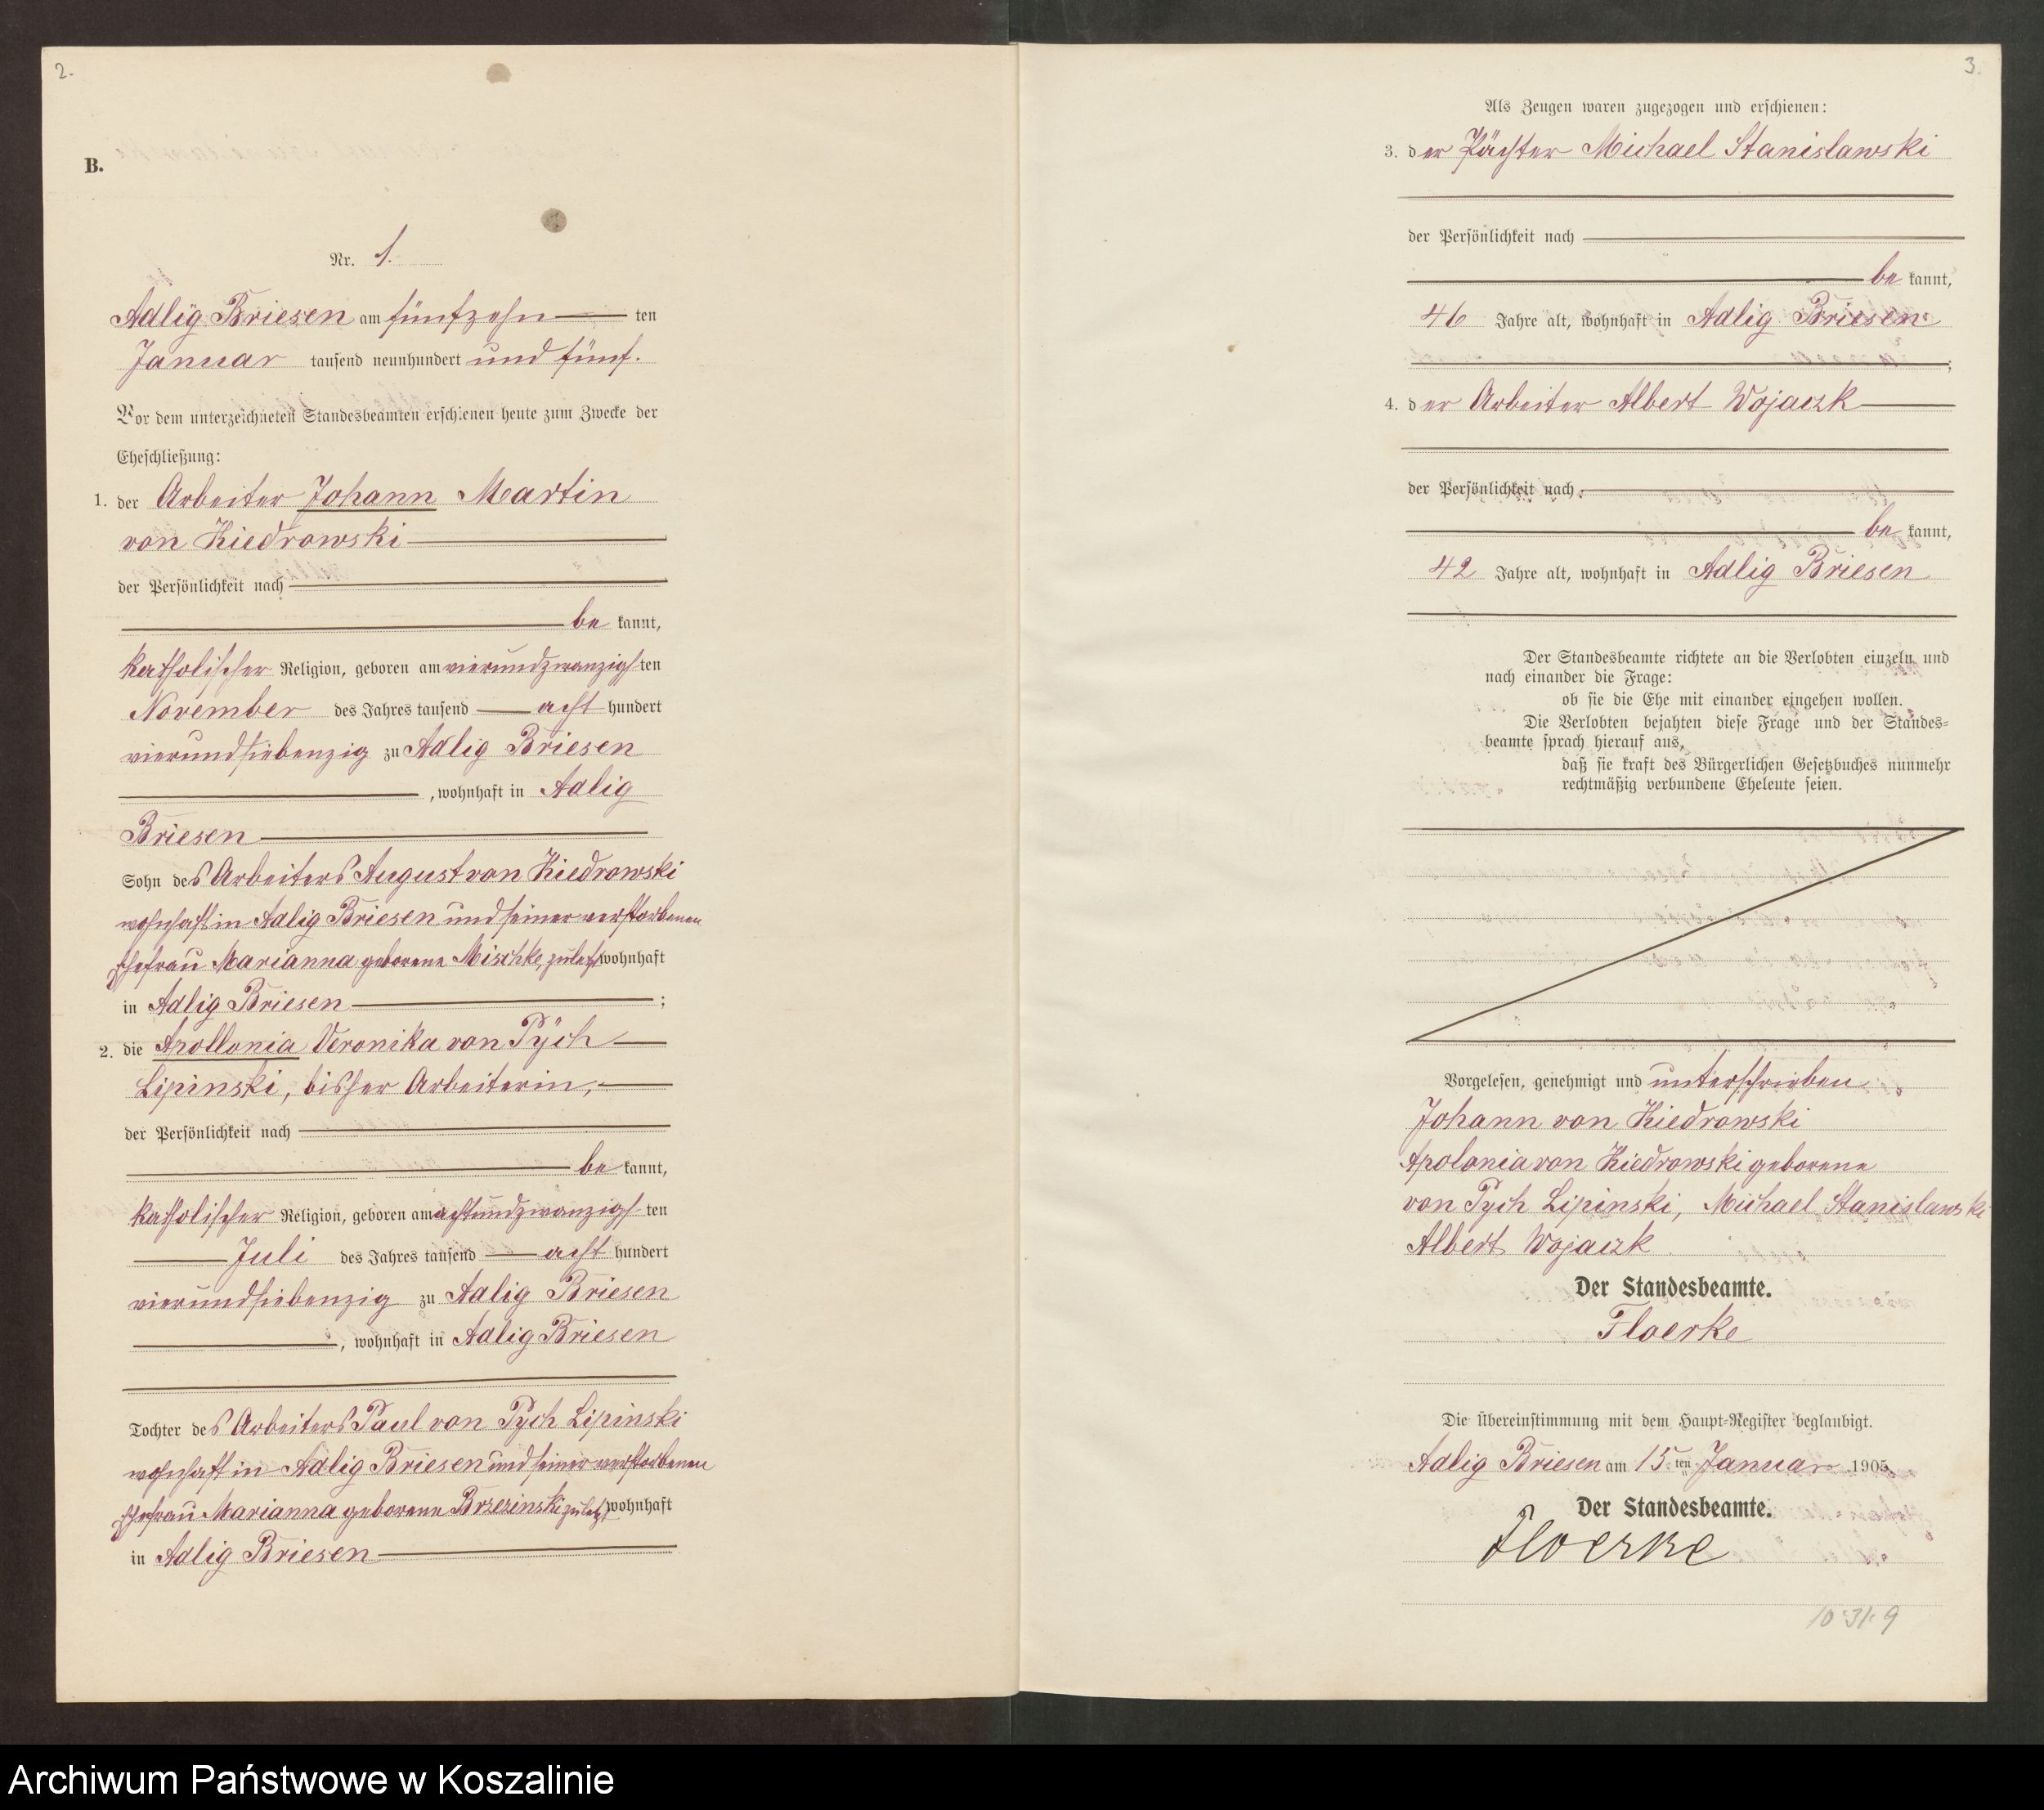 2.
B.
Nr. 1.
Adlig Briesen am fünfzehn ten
Januar tausend neunhundert und fünf.
Vor dem unterzeichneten Standesbeamten erschienen heute zum Zwecke der
Eheschließung:
1. der Arbeiter Johann Martin
von Kiedrowski
der Persönlichkeit nach
be kannt,
katholischer Religion, geboren am vierundzwanzigsten
November des Jahres tausend acht hundert
vierundsiebenzig zu Adlig Briesen
, wohnhaft in Adlig
Briesen
Sohn des Arbeiters August von Kiedrowski
wohnhaft in Adlig Briesen und seiner verstorbenen
Ehefrau Marianna geborene Mischke, zuletzt wohnhaft
in Adlig Briesen ;
2. die Apollonia Veronika von Pÿch
Lipinski, bisher Arbeiterin,
der Persönlichkeit nach
be kannt,
katholischer Religion, geboren am achtundzwanzigsten
Juli des Jahres tausend acht hundert
vierundsiebenzig zu Adlig Briesen
, wohnhaft in Adlig Briesen
Tochter des Arbeiters Paul von Pych Lipinski
wohnhaft in Adlig Briesen und seiner verstorbenen
Ehefrau Marianna geborene Brzezinski zuletzt wohnhaft
in Adlig Briesen
3.
Als Zeugen waren zugezogen und erschienen:
3. der Pächter Michael Stanislawski
der Persönlichkeit nach
be kannt,
46 Jahre alt, wohnhaft in Adlig Briesen
;
4. der Arbeiter Albert Wojaczk
der Persönlichkeit nach
be kannt,
42 Jahre alt, wohnhaft in Adlig Briesen
Der Standesbeamte richtete an die Verlobten einzeln und
nach einander die Frage:
ob sie die Ehe mit einander eingehen wollen.
Die Verlobten bejahten diese Frage und der Standes-
beamte sprach hierauf aus,
daß sie kraft des Bürgerlichen Gesetzbuches nunmehr
rechtmäßig verbundene Eheleute seien.
Vorgelesen, genehmigt und unterschrieben
Johann von Kiedrowski
Apolonia von Kiedrowski geborene
von Pych Lipinski, Michael Stanislawski
Albert Wojaczk
Der Standesbeamte.
Floerke
Die Übereinstimmung mit dem Haupt-Register beglaubigt.
Adlig Briesen am 15.ten Januar 1905
Der Standesbeamte.
Floerke
10·31·9
Archiwum Państwowe w Koszalinie